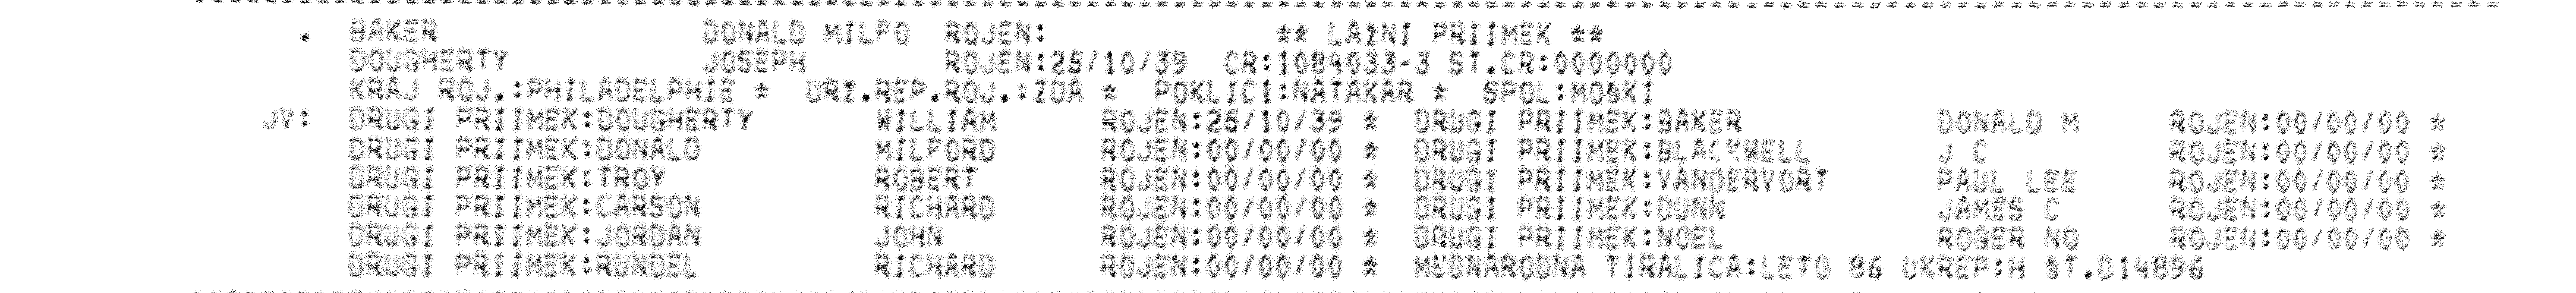 . BAKER DONALD MILFO ROJEN: ** LAZNI PRIIMEK **
DOUGHERTY JOSEPH ROJEN:25/10/39 CR:1084033-3 ST.CR:0000000
KRAJ ROJ.:PHILADELPHIE * DRZ.REP.ROJ.:ZDA * POKLIC1:NATAKAR * SPOL:MOSKI
JV: DRUGI PRIIMEK:DOUGHERTY WILLIAM ROJEN:25/10/39 * DRUGI PRIIMEK:BAKER DONALD M ROJEN:00/00/00 *
DRUGI PRIIMEK:DONALD MILFORD ROJEN:00/00/00 * DRUGI PRIIMEK:BLACKWELL J C ROJEN:00/00/00 *
DRUGI PRIIMEK:TROY ROBERT ROJEN:00/00/00 * DRUGI PRIIMEK:VANDERVORT PAUL LEE ROJEN:00/00/00 *
DRUGI PRIIMEK:CARSON RICHARD ROJEN:00/00/00 * DRUGI PRIIMEK:DUNN JAMES C ROJEN:00/00/00 *
DRUGI PRIIMEK:JORDAN JOHN ROJEN:00/00/00 * DRUGI PRIIMEK:NOEL ROGER NO ROJEN:00/00/00 *
DRUGI PRIIMEK:RUNDEL RICHARD ROJEN:00/00/00 * MEDNARODNA TIRALICA:LETO 86 UKREP:H ST.D14896